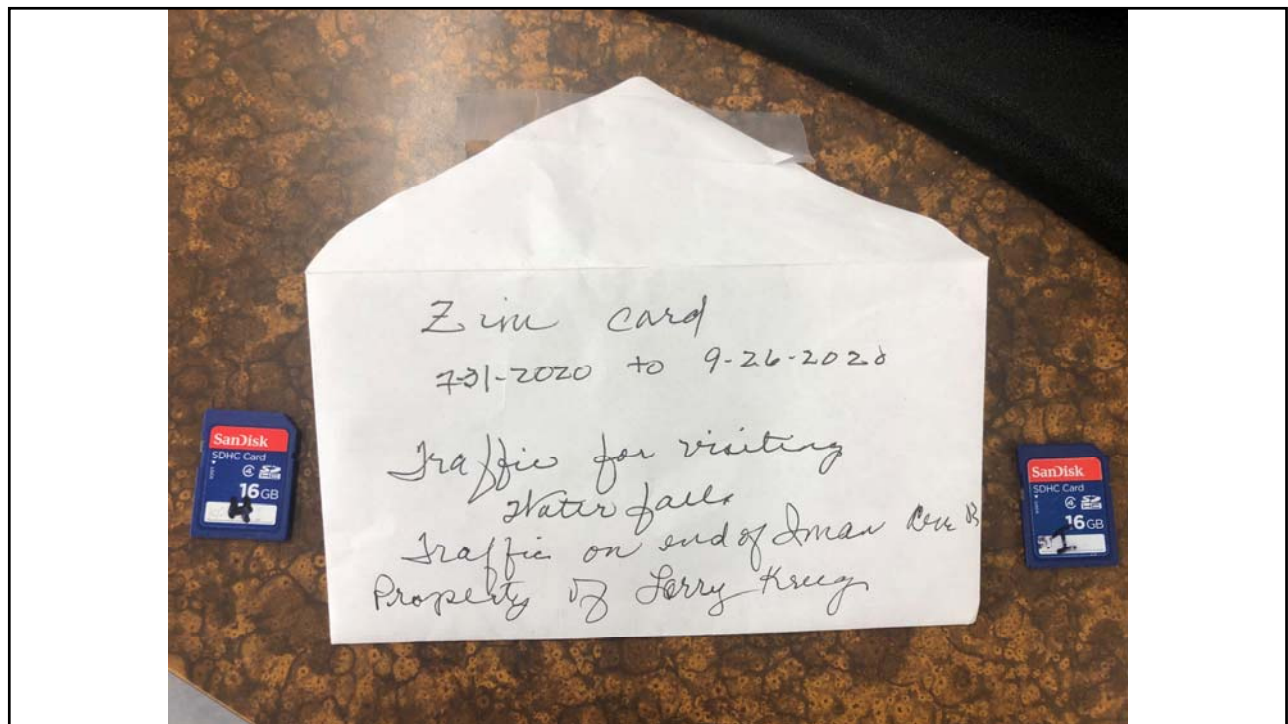 Zim card
7-31-2020 to 9-26-2020
Traffic for visiting
Water falls
Traffic on end of Iman
Property of
SanDisk
SDHC Card
4
16 GB
SanDisk
SDHC Card
4
16 GB